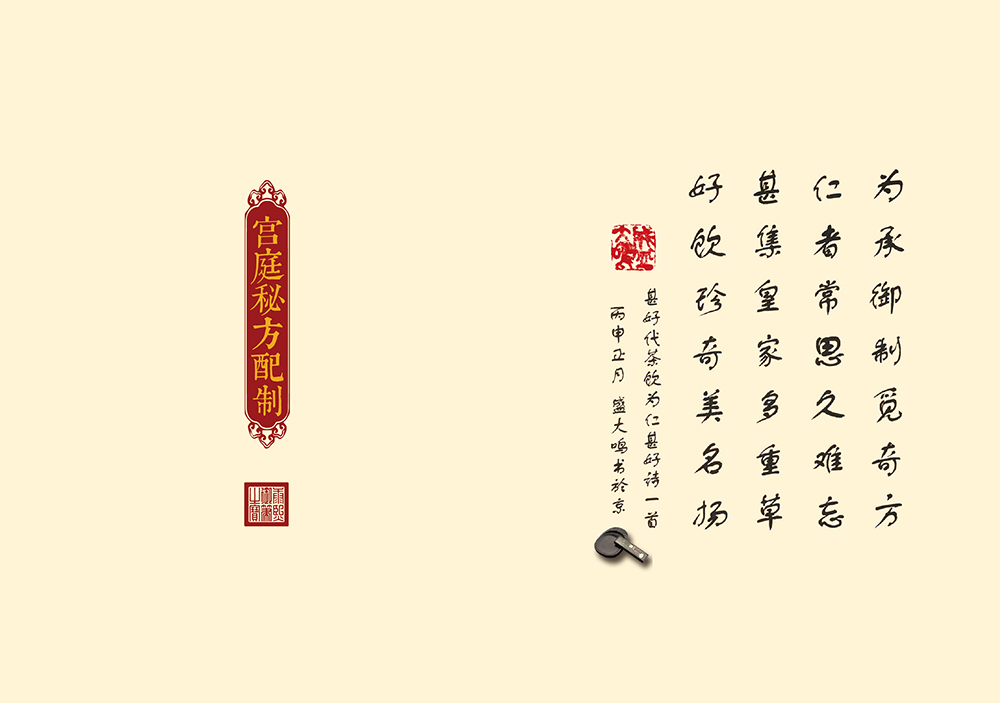 为承御制觅奇方
仁者常思久难忘
甚集皇家多重草
好饮珍奇美名扬
甚好代茶饮为仁甚好诗一首
丙申正月 盛大鸣书於京
宫庭秘方配制